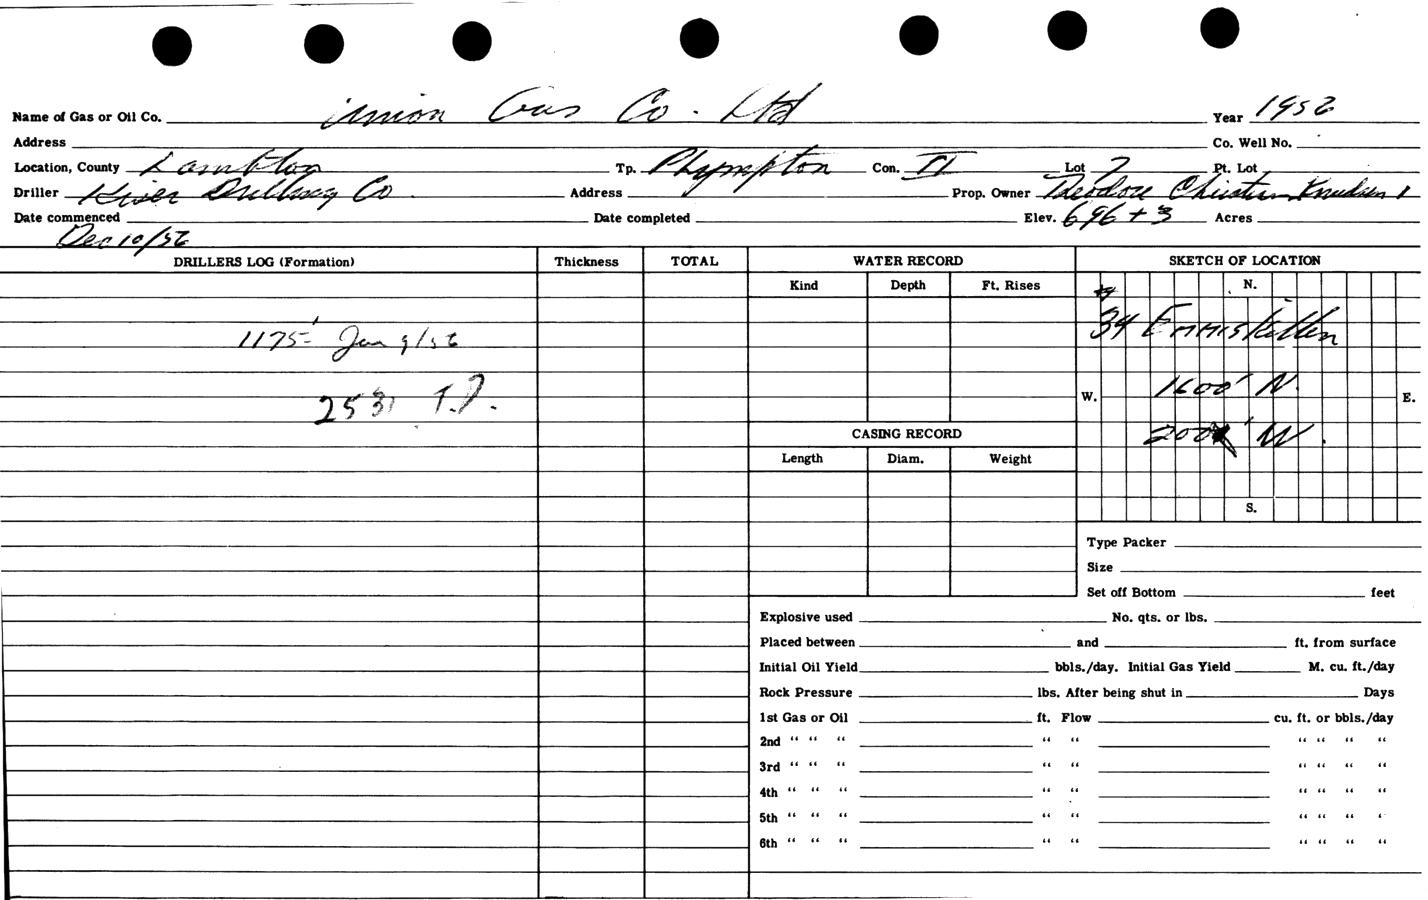 Name of Gas or Oil Co. Union Gas Co. Ltd Year 1956
Address Co. Well No.
Location, County Lambton Tp. Plympton Con. II Lot 7 Pt. Lot
Driller Drilling Co. Address Prop. Owner Theodore Christian Knudsen
Date commenced Date completed Elev. 696 + 3 Acres
Dec 10/56
DRILLERS LOG (Formation) Thickness TOTAL WATER RECORD SKETCH OF LOCATION
Kind Depth Ft. Rises N.
34 Enniskillen
1175' Jan 9/56
1600' N.
W. E.
2531 T.D.
200 W.
CASING RECORD
Length Diam. Weight
S.
Type Packer
Size
Set off Bottom feet
Explosive used No. qts. or lbs.
Placed between and ft. from surface
Initial Oil Yield bbls./day. Initial Gas Yield M. cu. ft./day
Rock Pressure lbs. After being shut in Days
1st Gas or Oil ft. Flow cu. ft. or bbls./day
2nd “ “ “ “ “ “ “ “ “
3rd “ “ “ “ “ “ “ “ “
4th “ “ “ “ “ “ “ “ “
5th “ “ “ “ “ “ “ “ “
6th “ “ “ “ “ “ “ “ “